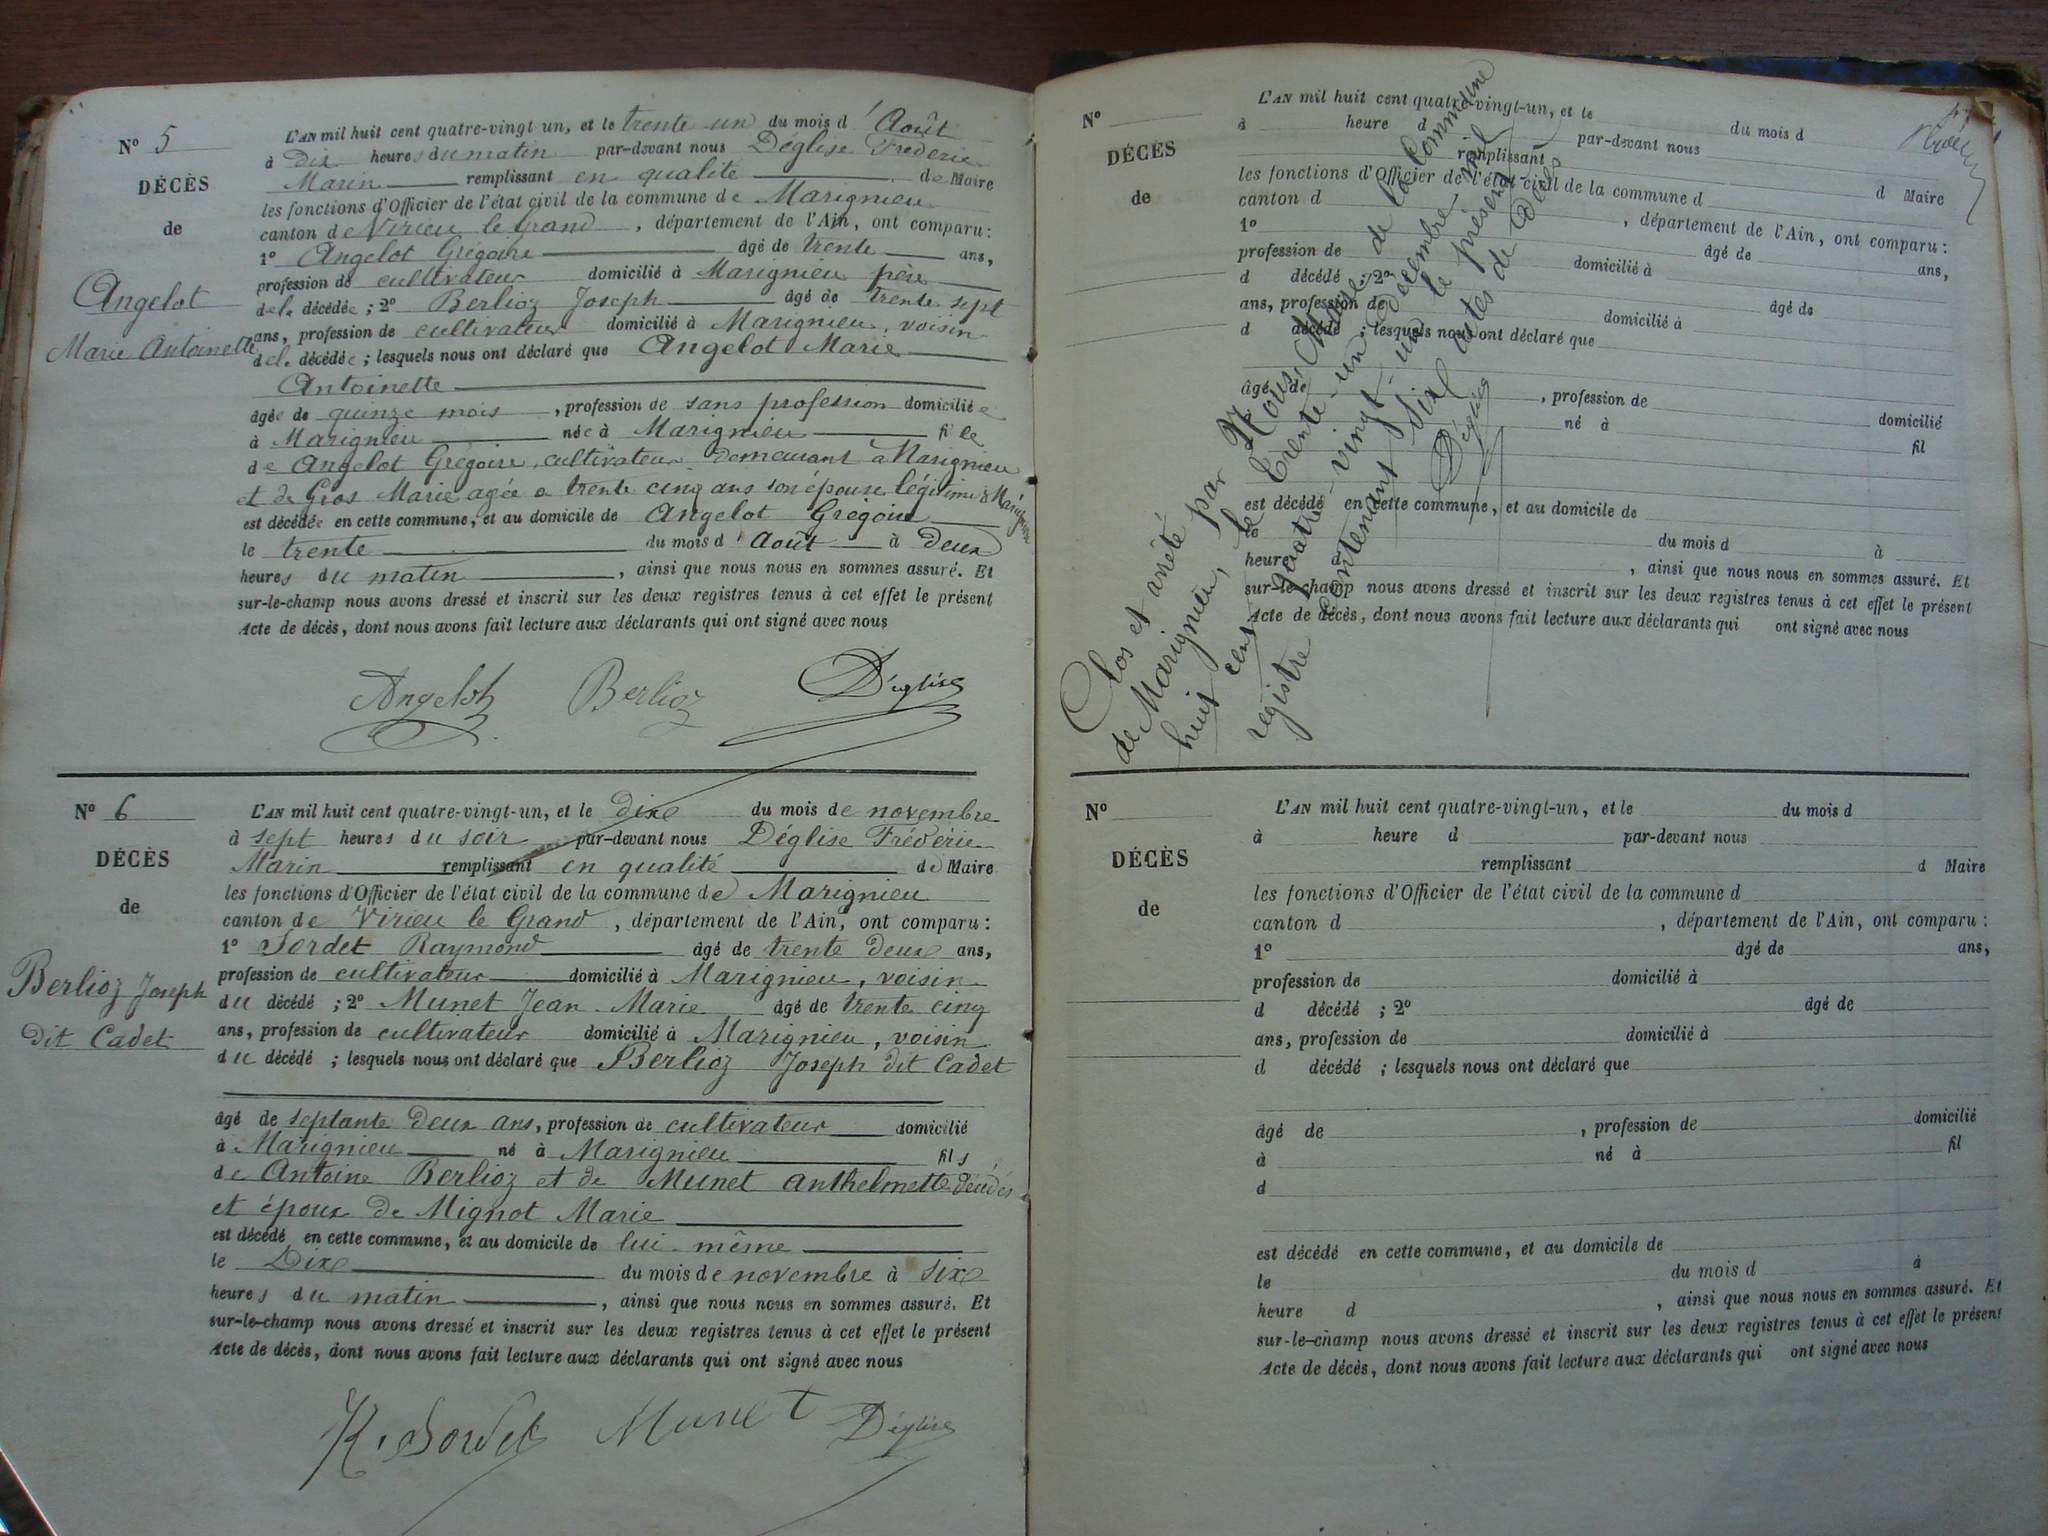 N° 5
DÉCÈS
de
Angelot
Marie Antoinette
L'AN mil huit cent quatre-vingt-un, et le trente un du mois d'Août
à dix heures du matin par-devant nous Déglise Frédéric
Marin remplissant en qualité de Maire
les fonctions d'Officier de l'état civil de la commune de Marignieu
canton de Virieu le Grand, département de l'Ain, ont comparu:
1° Angelot Grégoire âgé de trente ans,
profession de cultivateur domicilié à Marignieu père
de la décédée; 2° Berlioz Joseph âgé de trente sept
ans, profession de cultivateur domicilié à Marignieu, voisin
de la décédée; lesquels nous ont déclaré que Angelot Marie
Antoinette
âgée de quinze mois, profession de sans profession domiciliée
à Marignieu née à Marignieu fille
de Angelot Grégoire, cultivateur demeurant à Marignieu
et de Gros Marie agée de trente cinq ans son épouse légitime à Marignieu
est décédée en cette commune, et au domicile de Angelot Grégoire
le trente du mois d'Août à deux
heures du matin, ainsi que nous nous en sommes assuré. Et
sur-le-champ nous avons dressé et inscrit sur les deux registres tenus à cet effet le présent
Acte de décès, dont nous avons fait lecture aux déclarants qui ont signé avec nous
Angelot Berlioz Déglise
N° 6
DÉCÈS
de
Berlioz Joseph
dit Cadet
L'AN mil huit cent quatre-vingt-un, et le dix du mois de novembre
à sept heures du soir par-devant nous Déglise Frédéric
Marin remplissant en qualité de Maire
les fonctions d'Officier de l'état civil de la commune de Marignieu
canton de Virieu le Grand, département de l'Ain, ont comparu:
1° Sordet Raymond âgé de trente deux ans,
profession de cultivateur domicilié à Marignieu, voisin
du décédé; 2° Munet Jean Marie âgé de trente cinq
ans, profession de cultivateur domicilié à Marignieu, voisin
du décédé; lesquels nous ont déclaré que Berlioz Joseph dit Cadet
âgé de septante deux ans, profession de cultivateur domicilié
à Marignieu né à Marignieu fils
de Antoine Berlioz et de Munet Anthelmette
et époux de Mignot Marie
est décédé en cette commune, et au domicile de lui même
le Dix du mois de novembre à six
heures du matin, ainsi que nous nous en sommes assuré. Et
sur-le-champ nous avons dressé et inscrit sur les deux registres tenus à cet effet le présent
Acte de décès, dont nous avons fait lecture aux déclarants qui ont signé avec nous
R. Sordet Munet Déglise
N°
DÉCÈS
de
L'AN mil huit cent quatre-vingt-un, et le du mois d
à heure d par-devant nous
remplissant d Maire
les fonctions d'Officier de l'état civil de la commune d
canton d , département de l'Ain, ont comparu:
1° âgé de ans,
profession de domicilié à
d décédé; 2° âgé de
ans, profession de domicilié à
d décédé; lesquels nous ont déclaré que
âgé de , profession de domicilié
à né à fil
est décédé en cette commune, et au domicile de
le du mois d à
heure , ainsi que nous nous en sommes assuré. Et
sur-le-champ nous avons dressé et inscrit sur les deux registres tenus à cet effet le présent
Acte de décès, dont nous avons fait lecture aux déclarants qui ont signé avec nous
Clos et arrêté par Nous, Maire de la Commune
de Marignieu, le trente-un Décembre mil
huit cent quatre-vingt-un le présent
registre contenant six actes de Décès
Déglise
N°
DÉCÈS
de
L'AN mil huit cent quatre-vingt-un, et le du mois d
à heure d par-devant nous
remplissant d Maire
les fonctions d'Officier de l'état civil de la commune d
canton d , département de l'Ain, ont comparu:
1° âgé de ans,
profession de domicilié à
d décédé; 2° âgé de
ans, profession de domicilié à
d décédé; lesquels nous ont déclaré que
âgé de , profession de domicilié
à né à fil
d
est décédé en cette commune, et au domicile de
le du mois d à
heure d , ainsi que nous nous en sommes assuré. Et
sur-le-champ nous avons dressé et inscrit sur les deux registres tenus à cet effet le présent
Acte de décès, dont nous avons fait lecture aux déclarants qui ont signé avec nous